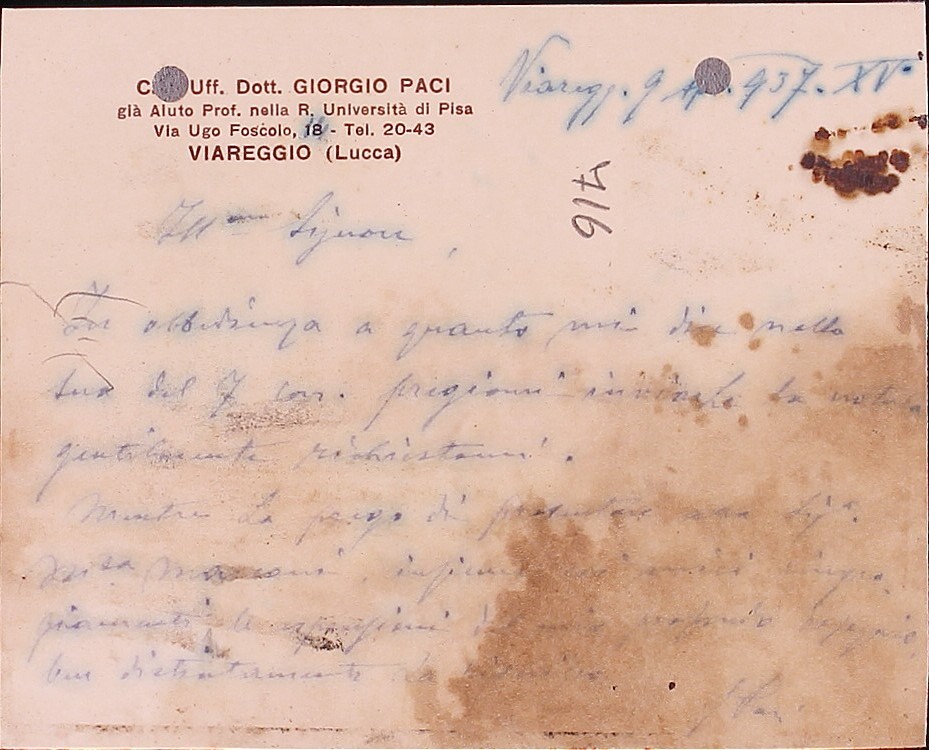 Uff. Dott. GIORGIO PACI
già Aiuto Prof. nella R. Università di Pisa
Via Ugo Foscolo, 18 - Tel. 20-43
VIAREGGIO (Lucca)
Viaregg. 9 937. XV°
716
Ill mo Signore,
In obbedienza a quanto mi dice nella
sua del 7 corr. pregiomi inviarle la notula
gentilmente richiestami.
Mentre La prego di presentare Sig.a
M.sa Marconi,
le espressioni mio profondo ossequio,
ben distintamente La
G Paci